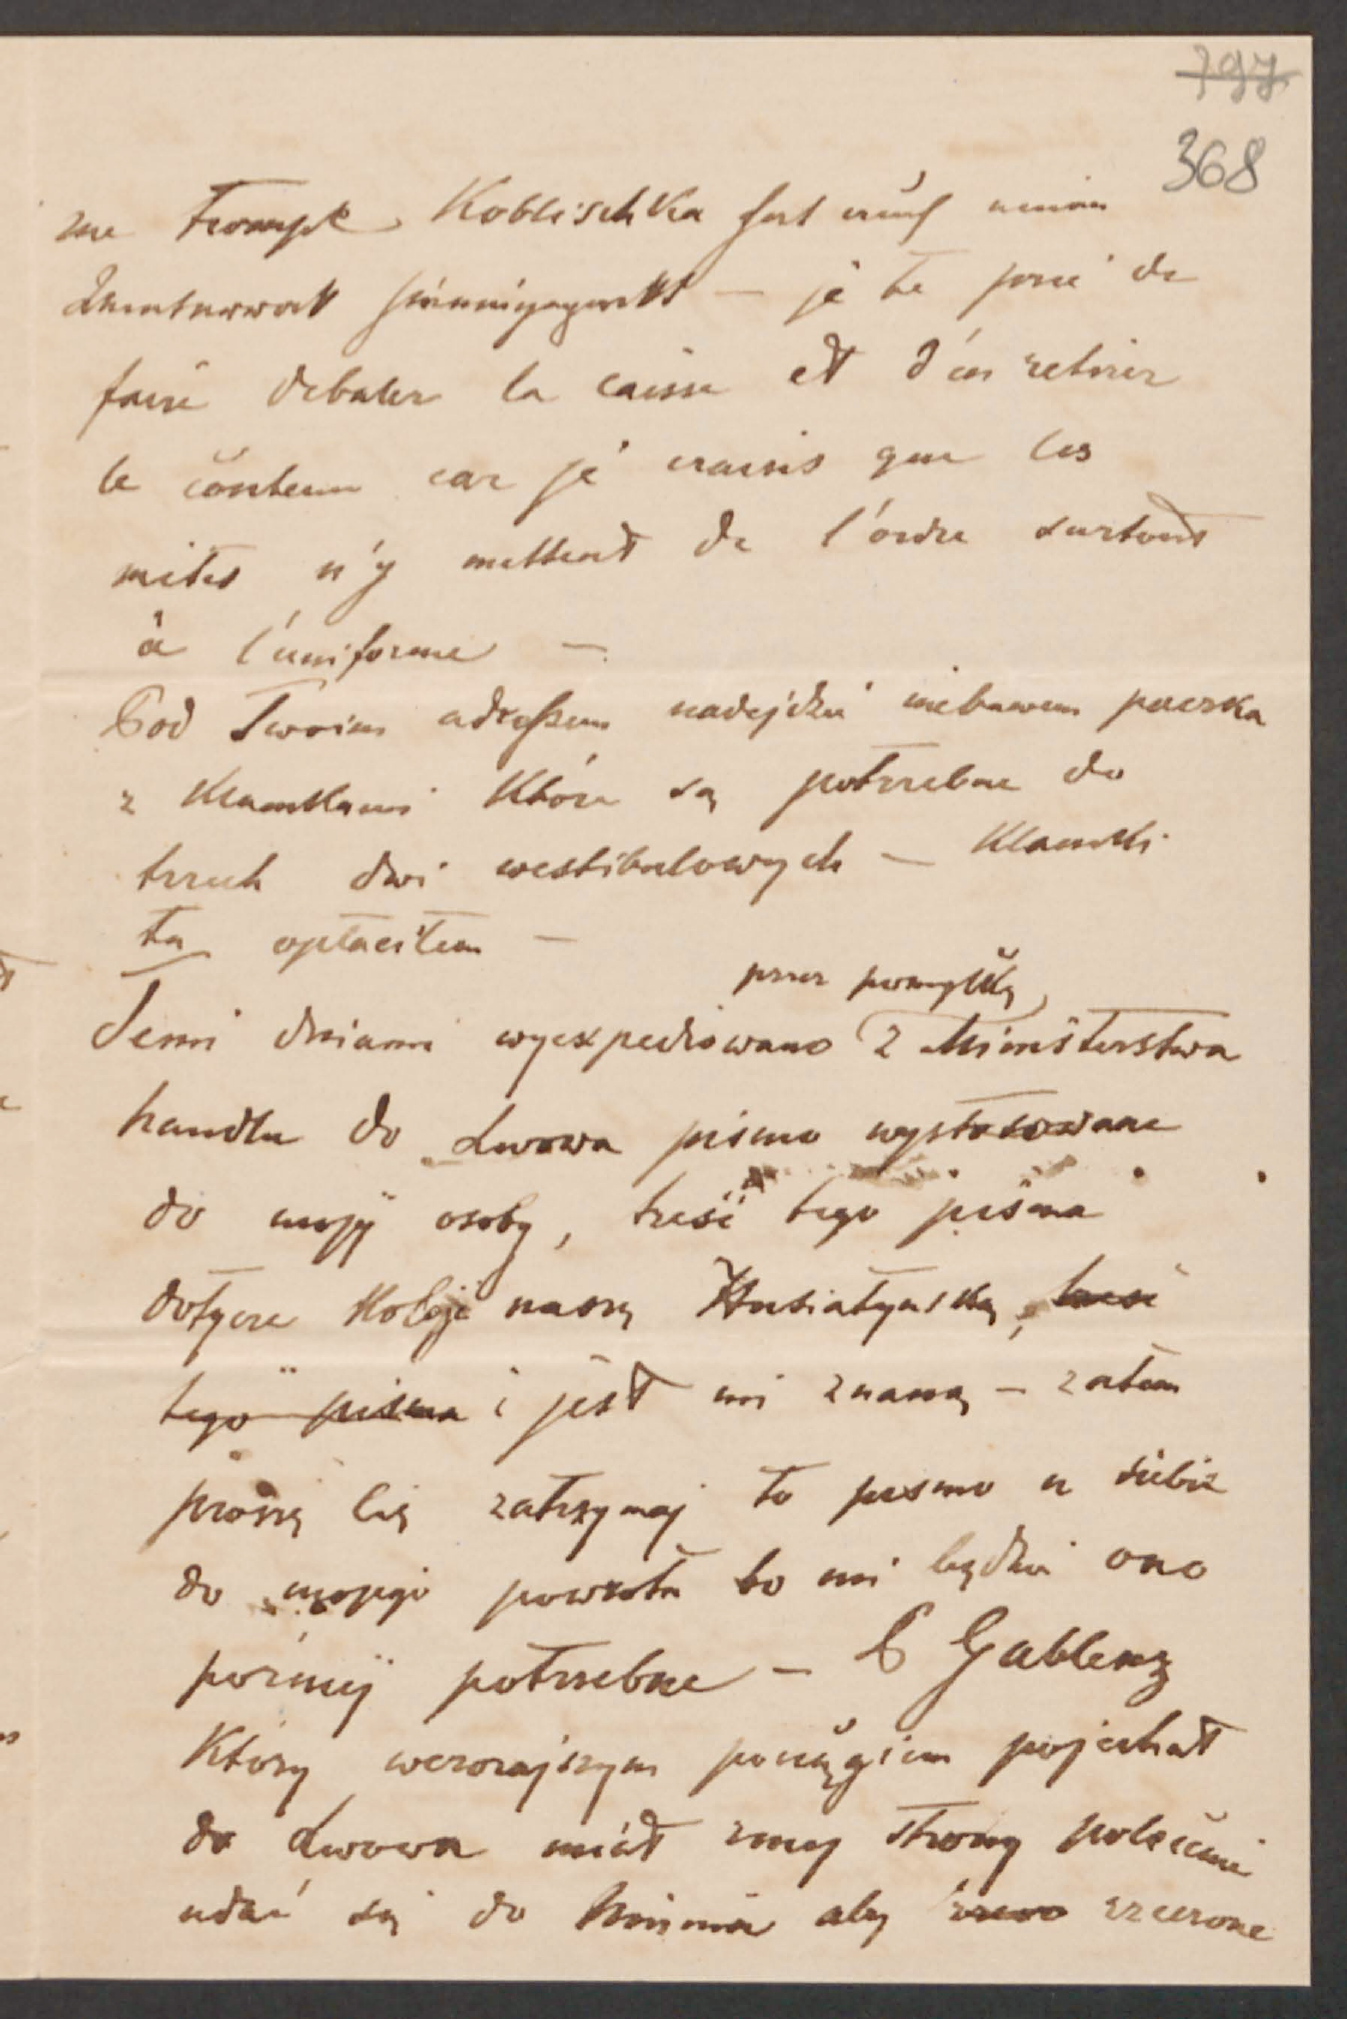 797
368
me trompe Koblischka hat auch meinen
hineingepackt — je te prie de
faire debaler la caisse et d'en retirer
le contenu car je crains que les
mites n'y mettent de l'ordre surtout
à l'uniforme —
Pod Twoim adressem nadejdzie niebawem paczka
z klamkami które są potrzebne do
trzech dwi westibulowych — klamki
te opłaciłem —
przez pomyłkę
Temi dniami wyexpediowano z Ministerstwa
handlu do Lwowa pismo wystosowane
do mojej osoby, treść tego pisma
dotycze kolej naszą Husiatyńską, treść
tego pisma i jest mi znaną — zatem
proszę Cię zatrzymaj to pismo u siebie
do mojego powrotu bo mi będzie ono
poźniej potrzebne — P Gablenz
Który wczorajszym pociągiem pojechał
do Lwowa miał zmej strony polecenie
udać się do aby rzeczone